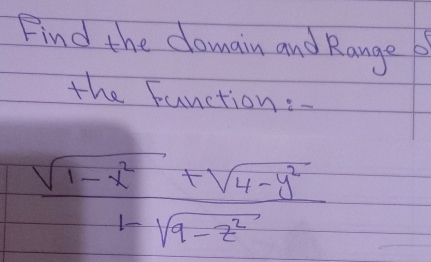 Find the domain and Range of
the Function:-
√1-x² + √4-y²
1-√9-z²